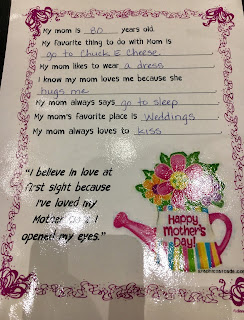 My mom is 80 years old.
My favorite thing to do with Mom is
go to Chuck E Cheese.
My mom likes to wear a dress
I know my mom loves me because she
hugs me
My mom always says go to sleep
My mom's favorite place is Weddings.
My mom always loves to kiss
"I believe in love at
first sight because
I've loved my
Mother since I
opened my eyes."
Happy
Mother's
Day!